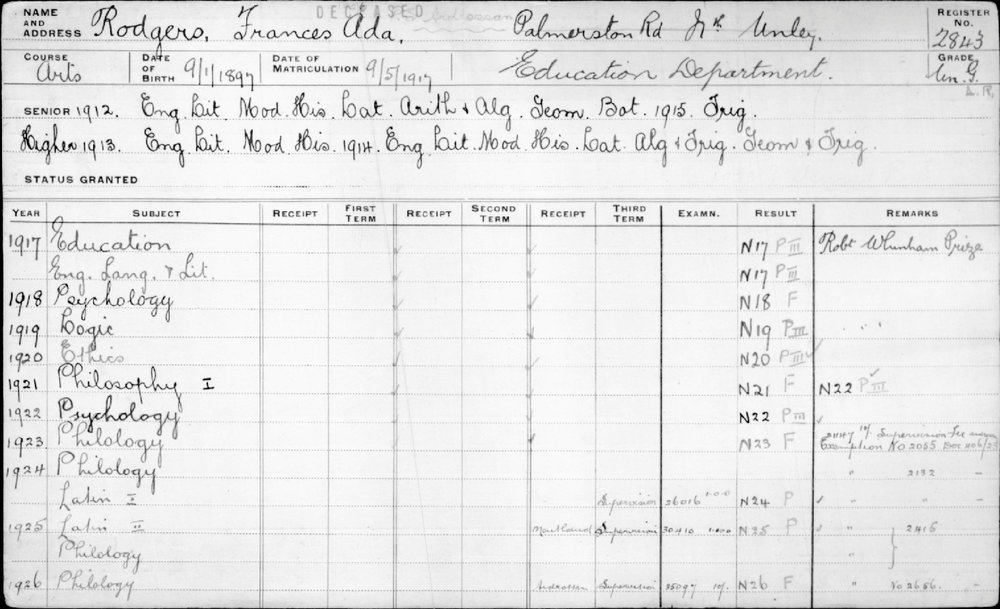 DECEASED
NAME AND ADDRESS Rodgers, Frances Ada, Palmerston Rd Nth Unley. REGISTER No. 2843
COURSE Arts DATE OF BIRTH 9/1/1897 DATE OF MATRICULATION 9/5/1917 Education Department. GRADE Un. G.
SENIOR 1912. Eng Lit. Mod. His. Lat. Arith & Alg. Geom. Bot. 1915. Trig.
Higher 1913. Eng. Lit. Mod. His. 1914. Eng. Lit. Mod. His. Lat. Alg & Trig. Geom & Trig.
STATUS GRANTED
YEAR SUBJECT RECEIPT FIRST TERM RECEIPT SECOND TERM RECEIPT THIRD TERM EXAMN. RESULT REMARKS
1917 Education N17 P III Robt Whinham Prize
Eng. Lang. & Lit. N17 P III
1918 Psychology N18 F
1919 Logic N19 P III
1920 Ethics N20 P III
1921 Philosophy I N21 F N22 P III
1922 Psychology N22 P III
1923 Philology N23 F 10/- Supervision Fee Exemption No 2055
1924 Philology " 2132 "
Latin I Supervision 26016 1.0.0 N24 P " "
1925 Latin II Maitland Supervision 30410 1.0.0 N25 P " 2415
Philology "
1926 Philology Ardrossan Supervision 35097 10/- N26 F " No 2656.